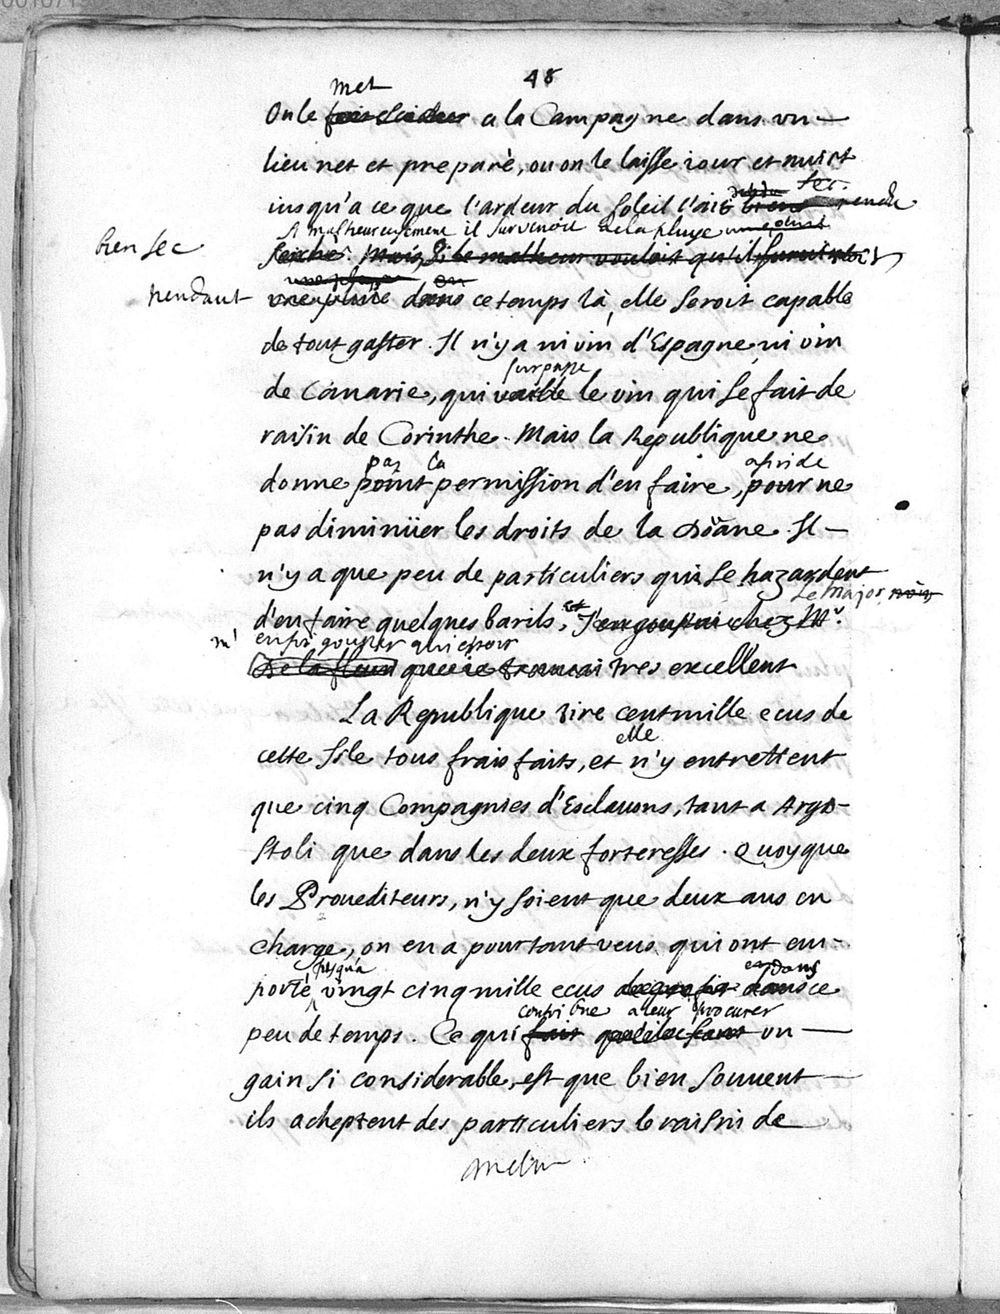 48
met
On le fait seicher a la Campagne dans un
lieu net et preparè, ou on le laisse iour et nuict
sec.
iusqu'a ce que l'ardeur du Soleil l'ait bien rendu
si malheureusement il survenoit de la pluye
bien sec
seiché. Mais, si le malheur vouloit qu'il survint
pendant
une pluie dans ce temps là, elle seroit capable
de tout gaster. Il n'y a ni vin d'Espagne ni vin
surpasse
de Canarie, qui vaille le vin qui se fait de
raisin de Corinthe. Mais la Republique ne
pas la afin de
donne point permission d'en faire, pour ne
pas diminüer les droits de la Doüane. Il
n'y a que peu de particuliers qui se hazardent
Le Major
d'en faire quelques barils, J'en goustai chez Mr.
m' en fit gouster qui estoit
de la que ie trouvai tres excellent
La Republique tire cent mille ecus de
elle
cette Isle tous frais faits, et n'y entretient
que cinq Compagnies d'Esclavons, tant a Argo-
stoli que dans les deux forteresses. Quoyque
les Provediteurs, n'y soient que deux ans en
charge, on en a pourtant veus qui ont em-
jusqu'a en dans
porté vingt cinq mille ecus de profit dans ce
contribue a leur procurer
peu de temps. Ce qui fait qu'ils font un
gain si considerable, est que bien souvent
ils acheptent des particuliers le raisin de